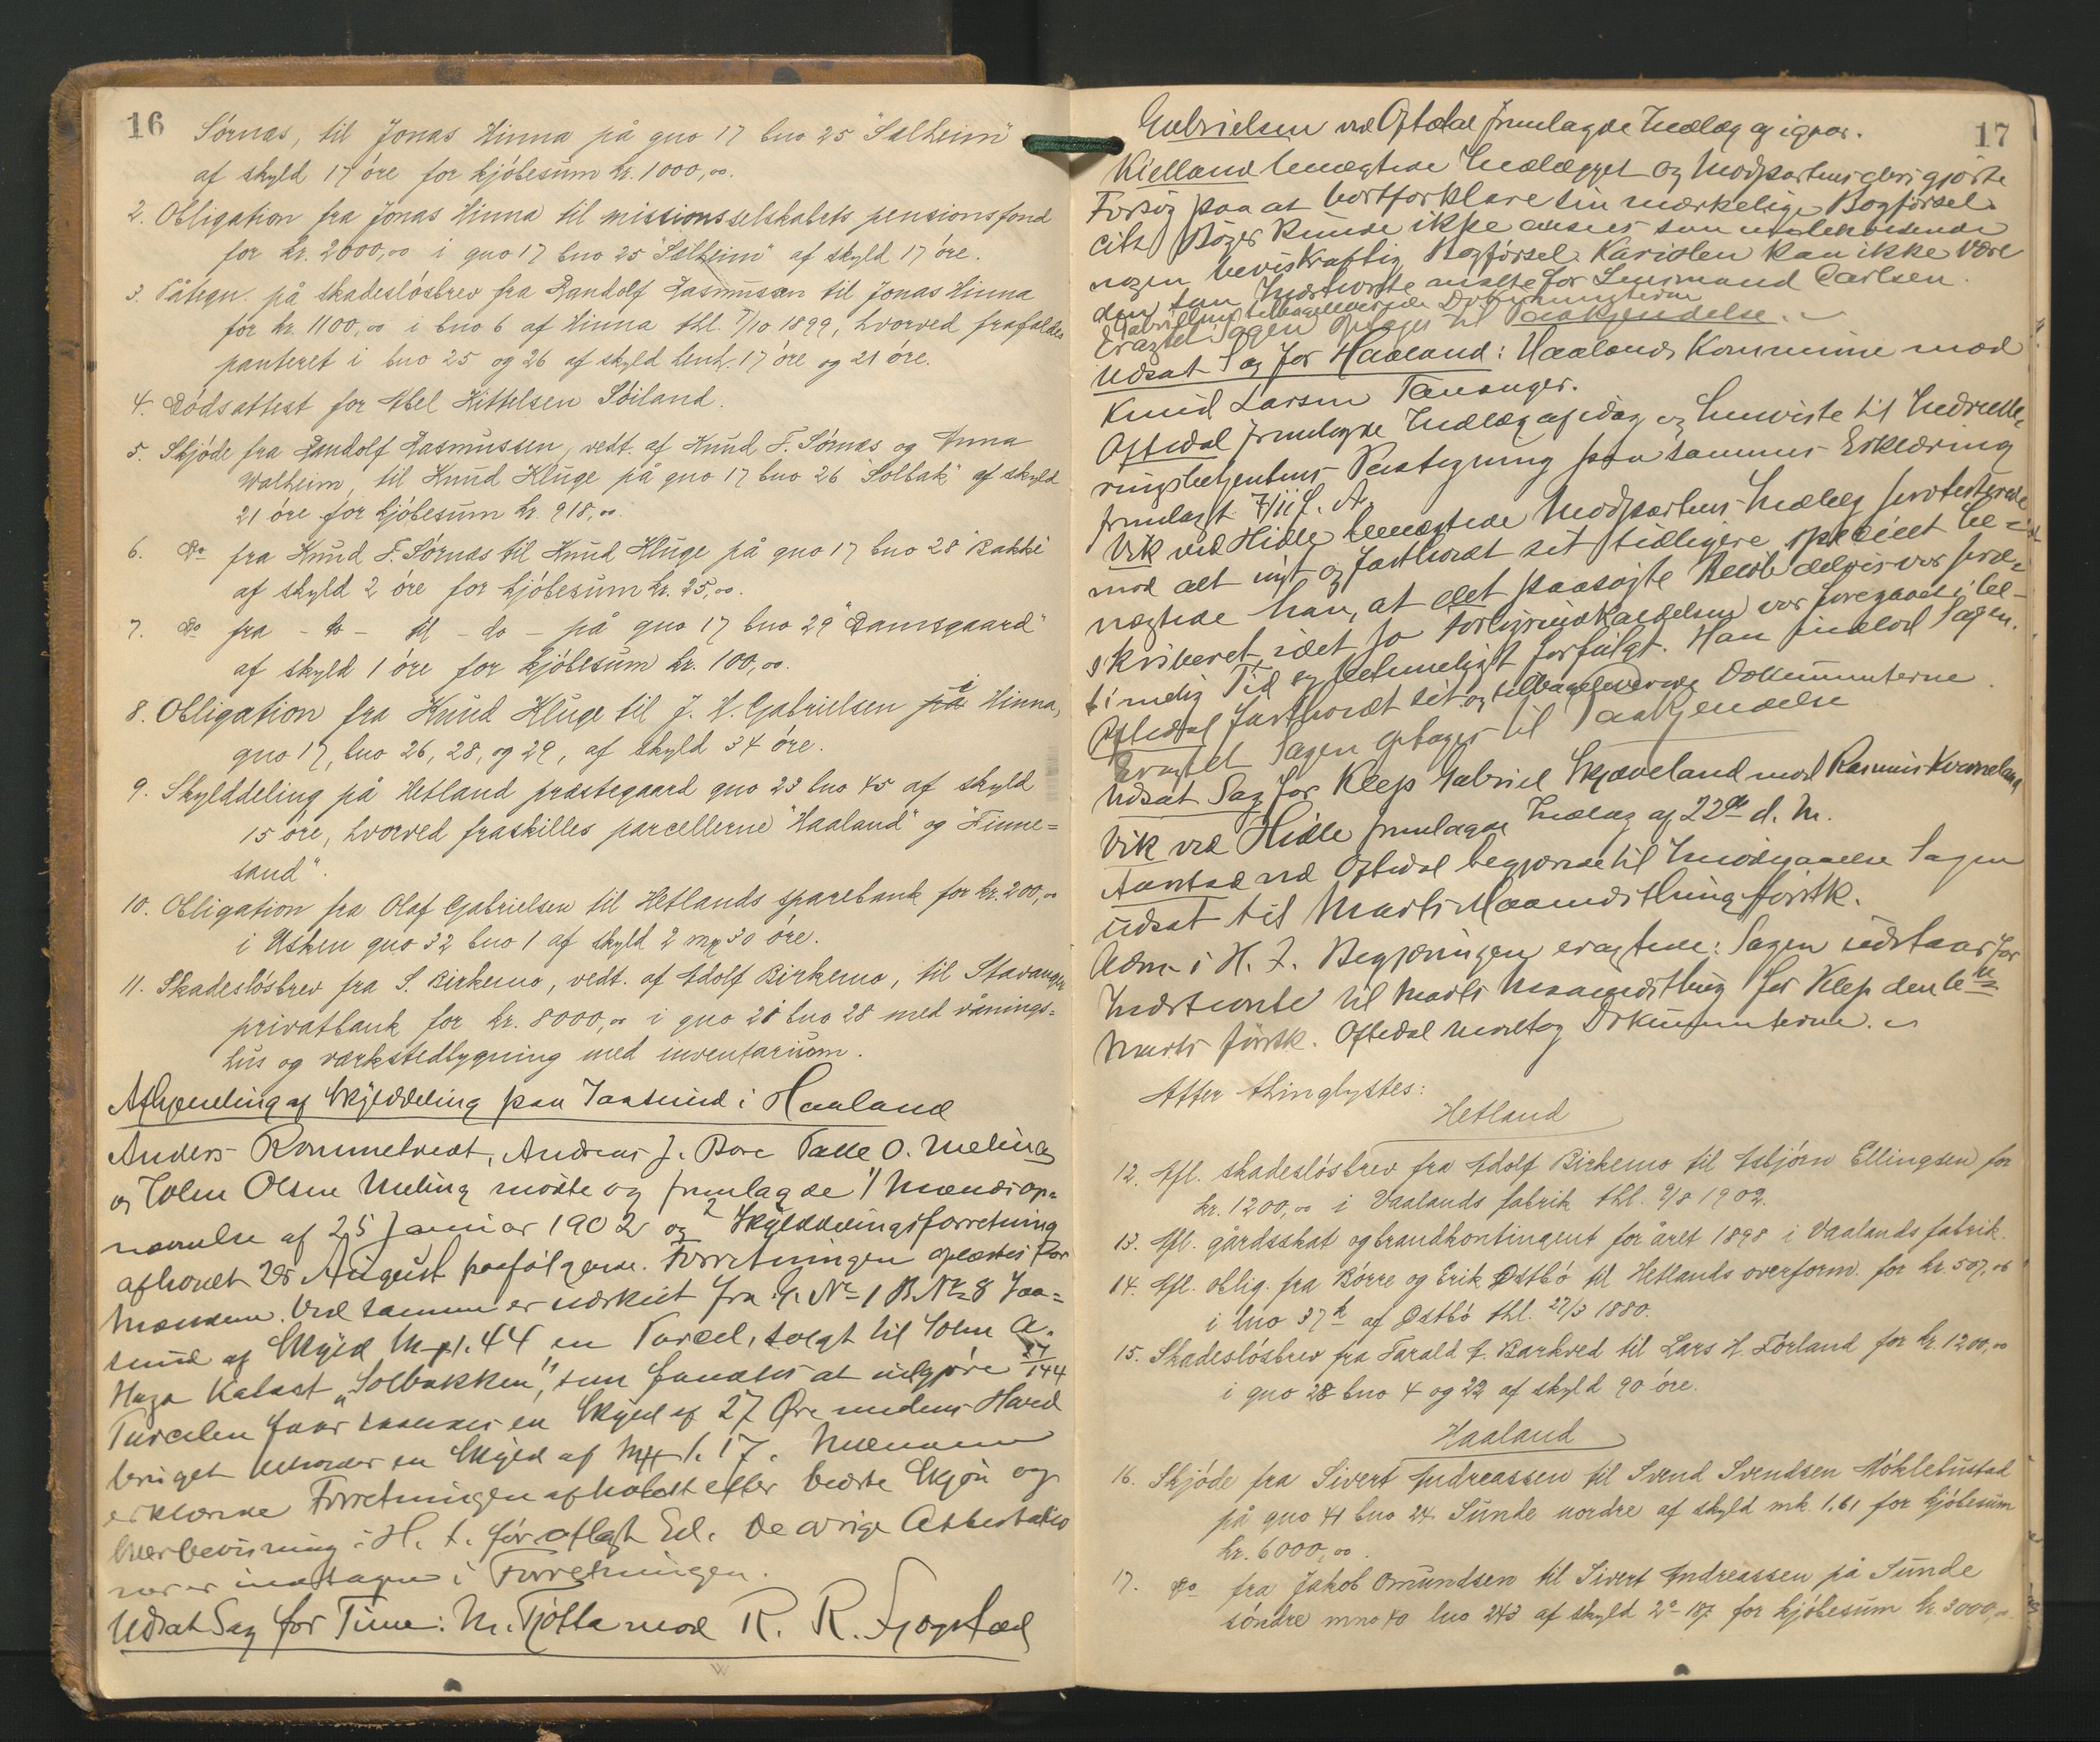 16
Sørnæs, til Jonas Hinna på gno 17 bno 25 "Solheim"
af skyld 17 øre for kjøbesum kr. 1000,00.
2. Obligation fra Jonas Hinna til missionsselskabets pensionsfond
for kr. 2000,00 i gno 17 bno 25 "Solheim" af skyld 17 øre.
3. Påtegn. på skadesløsbrev fra Randolf Rasmussen til Jonas Hinna
for kr. 1100,00 i bno 6 af Hinna thl. 7/10 1899, hvorved frafaldes
panteret i bno 25 og 26 af skyld henh. 17 øre og 21 øre.
4. Dødsattest for Abel Kittelsen Soiland.
5. Skjøde fra Randolf Rasmussen, vedt. af Knud F. Sørnæs og Anna
Walheim, til Knud Kluge på gno 17 bno 26 "Solbak" af skyld
21 øre for kjøbesum kr. 918,00.
6. Do fra Knud F. Sørnæs til Knud Kluge på gno 17 bno 28 "Bakke"
af skyld 2 øre for kjøbesum kr. 25,00.
7. Do fra - do - til - do - på gno 17 bno 29 "Damsgaard"
af skyld 1 øre for kjøbesum kr. 100,00.
8. Obligation fra Knud Kluge til J. H. Gabrielsen på i Hinna,
gno 17, bno 26, 28, og 29, af skyld 34 øre.
9. Skylddeling på Hetland præstegaard gno 23 bno 45 af skyld
15 øre, hvorved fraskilles parcellerne "Haaland" og "Finne=
sand".
10. Obligation fra Olaf Gabrielsen til Hetlands sparebank for kr. 200,00
i Usken gno 32 bno 1 af skyld 2 mrk 30 øre.
11. Skadesløsbrev fra S. Birkemo, vedt. af Adolf Birkemo, til Stavanger
privatbank for kr. 8000,00 i gno 28 bno 28 med vånings=
hus og værkstedbygning med inventarium.
Afhjemling af Skylddeling paa Jaasund i Haaland
Anders Rommetvedt, Andreas J. Bore Talle O. Meling
og John Olsen Meling mødte og fremlagde 1/ Mændsop=
nævnelse af 25 Januar 1902 og 2 Skylddelingsforretning
afholdt 28 August paafølgende. Forretningen oplæstes for
Mændene. Ved samme er udskilt fra G. No 1 B. No 8 Jaa=
sund af Skyld M pl. 44 en Parcel, solgt til John A.
Haga kaldet "Solbakken", som fandtes at udgjøre 27/144
Parcelen faar saaledes en Skyld af 27 Øre medens Hoved
bruget beholder en Skyld af Mrk 1. 17. Mændene
erklærede Forretningen afholdt efter bedste Skjøn og
Overbevisning i H. t. før aflagt Ed. De øvrige Attestatio
ner er indtagne i Forretningen.
Udsat Sag for Time: M. Tjøtta mod R. R. Fjogstad
17
Gabrielsen ved Oftedal fremlagde Indlæg af igaar.
Kielland benægtede Indlægget og Modpartens deri gjorte
Forsøg paa at bortforklare sin mærkelige Bogførsel.
Cit Bøger kunde ikke ansees som indeholdende
nogen beviskraftig Bogførsel. Kariolen kan ikke være
den som Indstevnte malte for Lensmand Carlsen.
Gabrielsen tilbageleverede Dokumenterne
Eragtet Sagen optages til Paakjendelse.
Udsat Sag for Haaland: Haalands Kommune mod
Knud Larsen Tananger.
Oftedal fremlagde Indlæg af idag og henviste til Inddrivel=
ringsbetjentens Paategning paa sammes Erklæring
fremlagt 7/11 f. A.
Vik ved Hidle benægtede Modpartens Indlæg protesterede
mod alt nyt og fastholdt sit tidligere specielt be=
nægtede han, at det paasøgte Beløb delvis var præ=
skriberet, idet jo Forligsindkaldelsen var foregaaet i be=
timelig Tid og behørigt forfulgt. Han indlod Sagen.
Oftedal fastholdt sit og tilbageleverede Dokumenterne.
Eragtet Sagen optages til Paakjendelse
Udsat Sag for Klep Gabriel Skjæveland mod Rasmus Kverneland
Vik ved Hidle fremlagde Indlæg af 22de d. M.
Aarstad ved Oftedal begjærede til Imødegaaelse Sagen
udsat til Marts Maanedsthing førstk.
Adm. i H. t. Begjæringen eragtede: Sagen udstaar for
Indstevnte til Marts Maanedsthing for Klep den 6te
Marts førstk. Oftedal modtog Dokumenterne.
Atter thinglystes:
Hetland
12. Afl. skadesløsbrev fra Adolf Birkemo til Asbjørn Ellingsen for
kr. 1200,00 i Vaalands fabrik thl. 9/8 1902.
13. Afl. gårdsskat og brandkontingent for året 1898 i Vaalands fabrik.
14. Afl. oblig. fra Børre og Erik Østbø til Hetlands overform. for kr. 507,06
i lno 37 b af Østbø thl. 27/3 1880.
15. Skadesløsbrev fra Tarald A. Barkved til Lars H. Førland for kr. 1200,00
i gno 28 bno 4 og 22 af skyld 90 øre.
Haaland
16. Skjøde fra Sivert Andreassen til Svend Svendsen Møklebustad
på gno 41 bno 24 Sunde nordre af skyld mk 1.61 for kjøbesum
kr. 6000,00.
17. Do fra Jakob Omundsen til Sivert Andreassen på Sunde
søndre mno 40 lno 243 af skyld for kjøbesum kr. 3000,00.